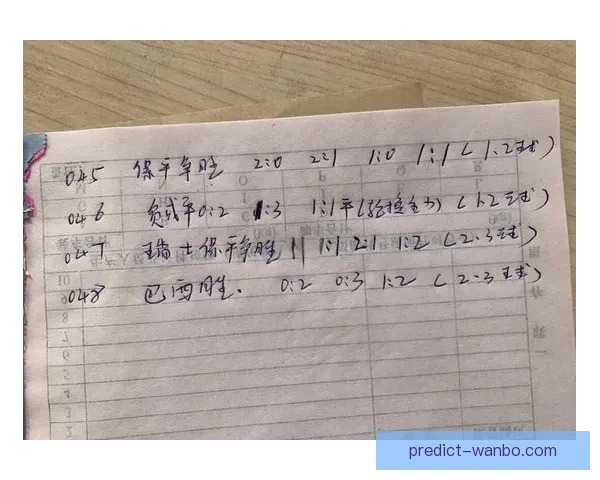 045 保平争胜 2:0 2:1 1:0 1:1 ( 1.2球)
046 负或平 0:2 1:3 1:1平 ( 1.2球)
047 瑞士保平争胜 || 1:1 2:1 1:2 ( 2.3球)
048 巴西胜. 0:2 0:3 1:2 ( 2-3球)
10
9
8
7
6
5
4
3
2
predict-wanbo.com